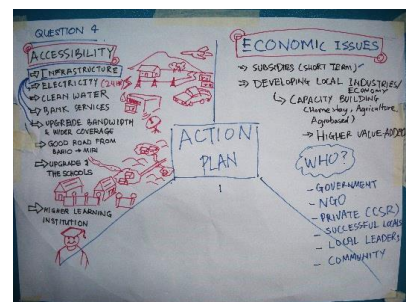 QUESTION 4
ACCESSIBILITY
INFRASTRUCTURE
ELECTRICITY (24HR)
CLEAN WATER
BANK SERVICES
UPGRADE BANDWIDTH
& WIDER COVERAGE
GOOD ROAD FROM
BARIO → MIRI
UPGRADE
THE SCHOOLS
HIGHER LEARNING
INSTITUTION
ACTION
PLAN
1
ECONOMIC ISSUES
SUBSIDIES (SHORT TERM)
DEVELOPING LOCAL INDUSTRIES/
ECONOMY
CAPACITY BUILDING
(Homestay, Agriculture,
Agrobased)
HIGHER VALUE ADDED
WHO?
- GOVERNMENT
- NGO
- PRIVATE (CSR)
- SUCCESSFUL LOCALS
- LOCAL LEADERS
- COMMUNITY